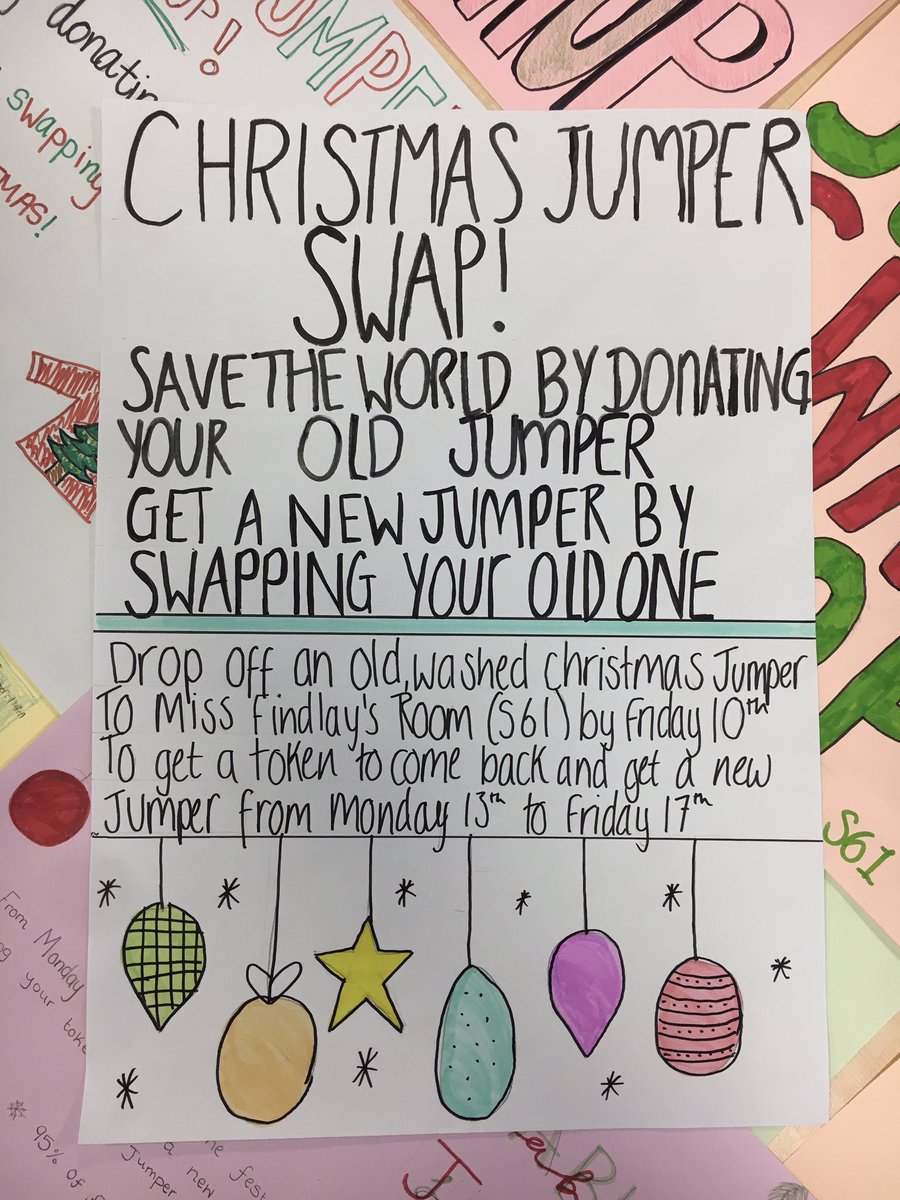 CHRISTMAS JUMPER
SWAP!
SAVE THE WORLD BY DONATING
YOUR OLD JUMPER
GET A NEW JUMPER BY
SWAPPING YOUR OLD ONE
Drop off an old, washed christmas Jumper
To Miss Findlay's Room (S61) by Friday 10th
To get a token to come back and get a new
Jumper from Monday 13th to Friday 17th
UP!
JUMPE
donatin
swapping
TMAS!
S61
From Monday
ng your toke
95% of
a new
Jumper